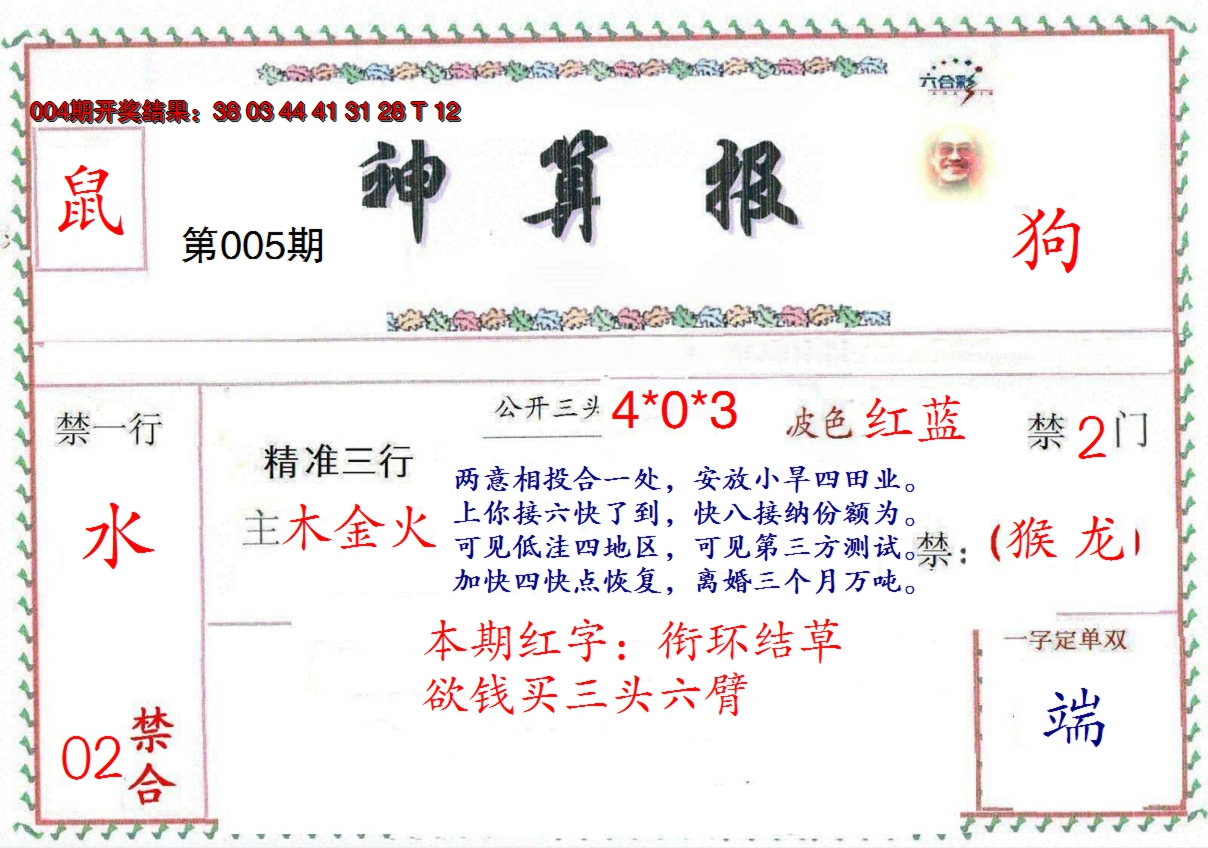 六合彩
004期开奖结果：38 03 44 41 31 28 T 12
神算报
鼠
第005期
狗
禁一行
水
公开三头 4*0*3
波色 红蓝
禁 2 门
精准三行
主木金火
两意相投合一处，安放小旱四田业。
上你接六快了到，快八接纳份额为。
可见低洼四地区，可见第三方测试。
加快四快点恢复，离婚三个月万吨。
禁：(猴 龙)
本期红字：衔环结草
欲钱买三头六臂
一字定单双
端
02 禁合